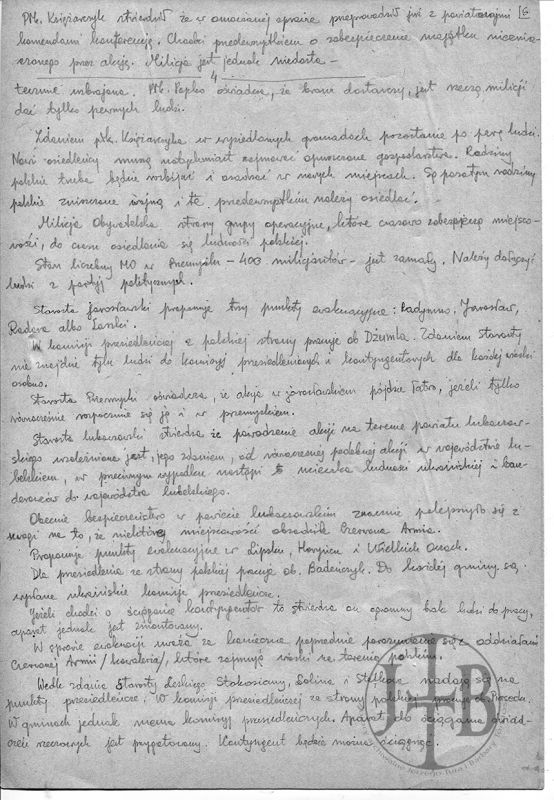 Płk. Księżarczyk stwierdził że w omawianej sprawie przeprowadził już z powiatowymi 6
komendami konferencję. Chodzi przedewszystkiem o zabezpieczenie majątku niezni-
szczonego przez akcję. Milicja jest jednak niedosta-
4
tecznie uzbrojona. Płk. Popko oświadcza, że broń dostarczy, jest rzeczą milicji
dać tylko pewnych ludzi.
Zdaniem płk. Księżarczyka w wysiedlanych gromadach pozostanie po parę ludzi.
Nowi osiedleńcy muszą natychmiast zajmować opuszczone gospodarstwa. Rodziny
polskie trzeba będzie rozbijać i osadzać w nowych miejscach. Są pozatym rodziny
polskie zniszczone wojną i te przedewszystkim należy osiedlać.
Milicja Obywatelska stworzy grupy operacyjne, które czasowo zabezpieczą miejsco-
wości, do czasu osiedlenia się ludności polskiej.
Stan liczebny MO w Przemyślu - 403 milicjantów - jest zamały. Należy dołączyć
ludzi z partyj politycznych.
Starosta jarosławski proponuje trzy punkty ewakuacyjne: Radymno, Jarosław,
Radawa albo Laszki.
W komisji przesiedleńczej z polskiej strony pracuje ob. Dżumla. Zdaniem starosty
nie znajdzie tylu ludzi do komisyj przesiedleńczych i kontyngentowych dla każdej wioski
osobno.
Starosta Przemyski oświadcza, że akcja w jarosławskiem pójdzie łatwo, jeżeli tylko
równocześnie rozpocznie się ją i w przemyskiem.
Starosta lubaczowski stwierdza że powodzenie akcji na terenie powiatu lubaczow-
skiego uzależnione jest, jego zdaniem, od równoczesnej podobnej akcji w województwie lu-
belskiem, w przeciwnym wypadku nastąpi ucieczka ludności ukraińskiej i ban-
derowców do województwa lubelskiego.
Obecnie bezpieczeństwo w powiecie lubaczowskim znacznie polepszyło się z
uwagi na to, że niektóre miejscowości obsadziła Czerwona Armia.
Proponuje punkty ewakuacyjne w Lipsku, Horyńcu i Wielkich Oczach.
Dla przesiedlenia ze strony polskiej pracuje ob. Badeńczyk. Do każdej gminy są
wysłane ukraińskie komisje przesiedleńcze.
Jeżeli chodzi o ściąganie kontyngentów to stwierdza on ogromny brak ludzi do pracy,
aparat jednak jest zmontowany.
W sprawie ewakuacji uważa za konieczne poprzednie porozumienie się z oddziałami
Czerwonej Armii /kawaleria/, które zajmują wioski na terenie polskim.
Wedle zdania Starosty Leskiego Stokosiany, Solina i nadają się na
punkty przesiedleńcze. W komisji przesiedleńczej ze strony polskiej pracuje
W gminach jednak niema komisyj przesiedleńczych. Aparat do ściągania świad-
czeń rzeczowych jest przygotowany. Kontyngent będzie można ściągnąć.
JTB